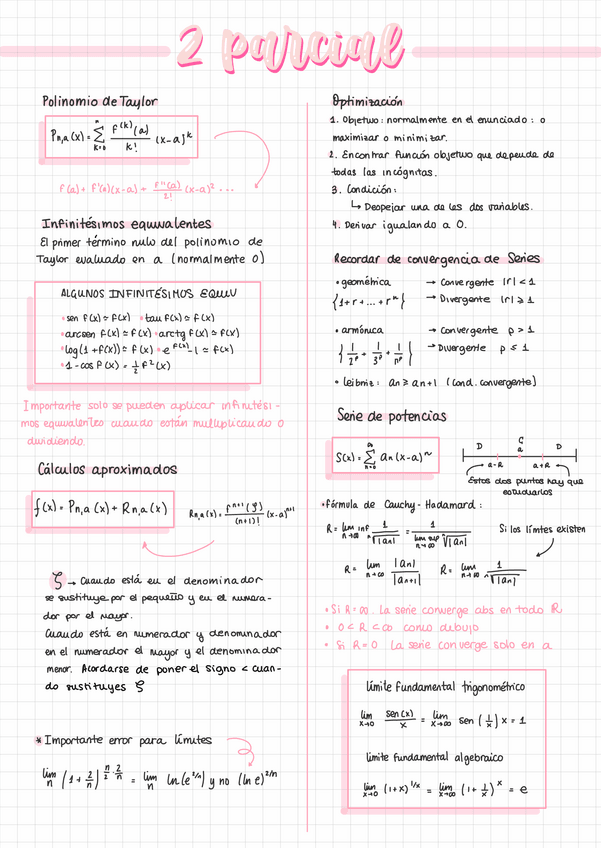 2 parcial
Polinomio de Taylor
Pn,a (x) = Σ k=0 n f^(k)(a) / k! (x-a)^k
f(a) + f'(a)(x-a) + f''(a)/2! (x-a)² ...
Infinitésimos equivalentes
El primer término nulo del polinomio de
Taylor evaluado en a (normalmente 0)
ALGUNOS INFINITÉSIMOS EQUIV
• sen f(x) ≈ f(x) • tau f(x) ≈ f(x)
• arcsen f(x) ≈ f(x) • arctg f(x) ≈ f(x)
• log(1+f(x)) ≈ f(x) • e^f(x) - 1 ≈ f(x)
• 1 - cos f(x) = 1/2 f²(x)
Importante solo se pueden aplicar infinitési-
mos equivalentes cuando están multiplicando o
dividiendo.
Cálculos aproximados
f(x) = Pn,a (x) + Rn,a (x)
Rn,a(x) = f^n+1 (ζ) / (n+1)! (x-a)^n+1
ζ → Cuando está en el denominador
se sustituye por el pequeño y en el numera-
dor por el mayor.
Cuando está en numerador y denominador
en el numerador el mayor y el denominador
menor. Acordarse de poner el signo < cuan-
do sustituyes ζ
* Importante error para límites
lim n (1 + 2/n)^(n/2 · 2/n) = lim n ln(e^2/n) y no (ln e)^2/n
Optimización
1. Objetivo: normalmente en el enunciado : o
maximizar o minimizar.
2. Encontrar función objetivo que depende de
todas las incógnitas.
3. Condición:
↳ Despejar una de las dos variables.
4. Derivar igualando a 0.
Recordar de convergencia de Series
• geométrica → Convergente |r| < 1
{1+r+...+r^k} → Divergente |r| ≥ 1
• armónica → Convergente p > 1
{ 1/2^p + 1/3^p + 1/n^p } → Divergente p ≤ 1
• Leibniz: an ≥ an+1 (Cond. convergente)
Serie de potencias
S(x) = Σ n=0 ∞ an (x-a)^n
D C D
a
a-R a+R
Estos dos puntos hay que
estudiarlos
• Fórmula de Cauchy-Hadamard:
R = lim inf n→∞ 1/√|an| = 1 / lim sup n→∞ n√|an| Si los límites existen
R = lim n→∞ |an| / |an+1| R = lim n→∞ 1 / n√|an|
• Si R=∞. La serie converge abs en todo ℝ
• 0 < R < ∞ como dibujo
• Si R=0 La serie converge solo en a
límite fundamental trigonométrico
lim x→0 sen(x)/x = lim x→∞ sen (1/x) x = 1
límite fundamental algebraico
lim x→0 (1+x)^1/x = lim x→∞ (1 + 1/x)^x = e